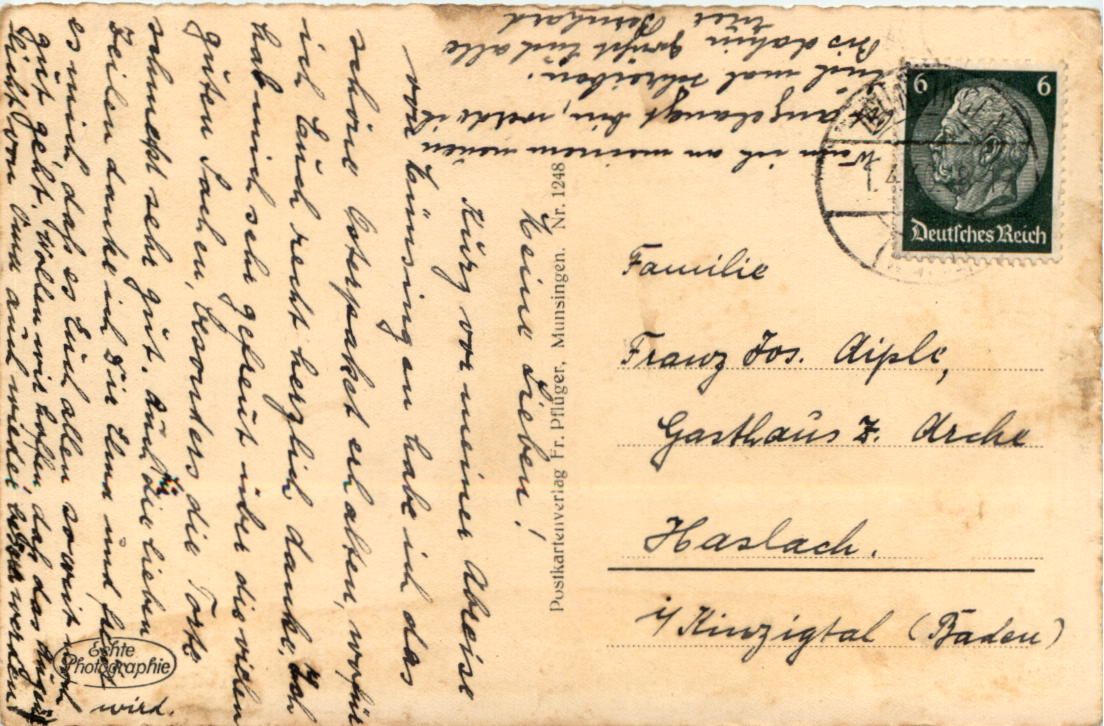 Meine Lieben!
Kurz vor meiner Abreise
von Münsingen habe ich das
schöne Osterpacket erhalten, wofür
ich Euch recht herzlich danke. Ich
hab mich sehr gefreut über die vielen
guten Sachen, besonders die Torte
schmeckt sehr gut. Auch die lieben
Zeilen danke ich Dir Elma und freut
es mich, daß es Euch allen soweit noch
gut geht, wollen wir hoffen, daß das
leicht von Oma auch wieder besser werden
wird.
Wenn ich an meinem neuen
angelangt bin, werde ich
Euch mal schreiben.
Bis dahin grüßt Euch alle
Euer Bernhard
Postkartenverlag Fr. Pflüger, Munsingen. Nr. 1248
Echte
Photographie
6 6
Deutsches Reich
Familie
Franz Jos. Aiple,
Gasthaus z. Arche
Haslach.
i/Kinzigtal (Baden)